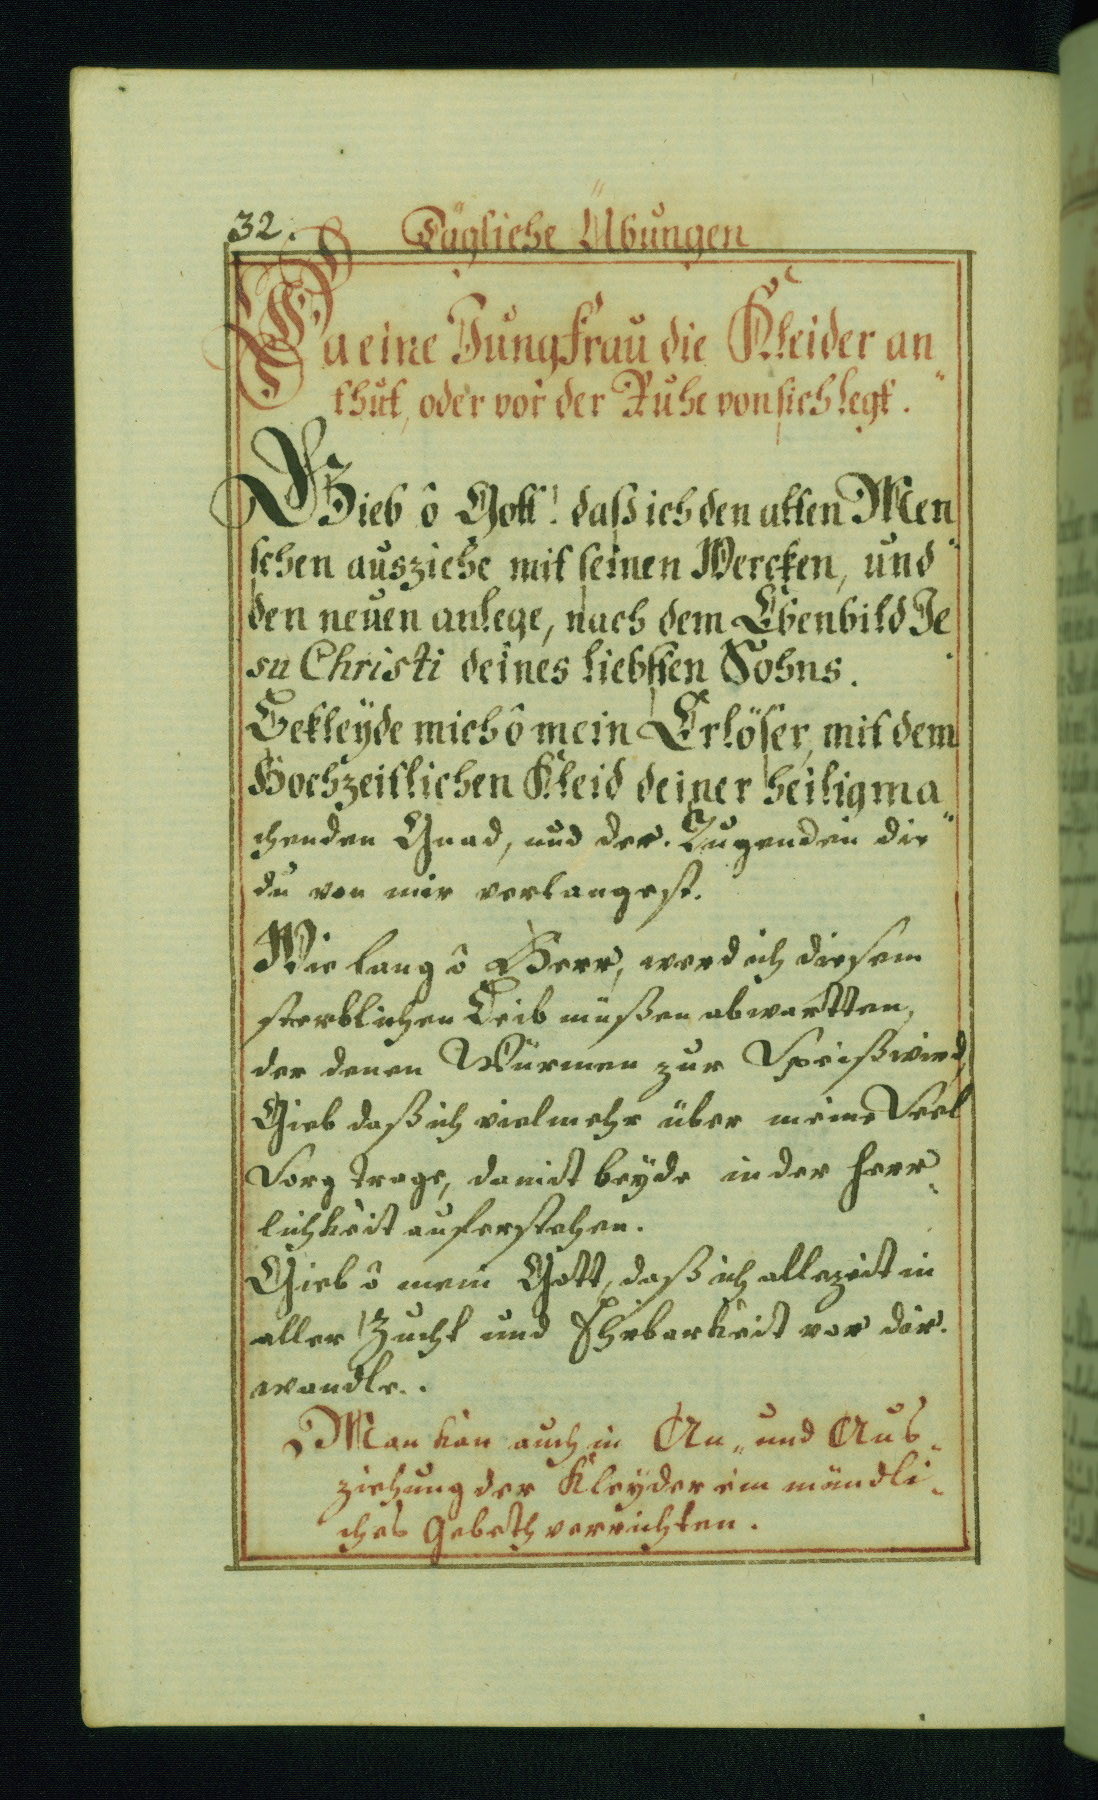 32. Tägliche Übungen
Da eine Jungfrau die Kleider an„
thut, oder vor der Ruhe von sich legt.
Gieb ô Gott! daß ich den alten Men„
schen ausziehe mit seinen Wercken, und
den neuen anlege, nach dem Ebenbild Je„
su Christi deines liebsten Sohns.
Bekleÿde mich ô mein Erlöser, mit dem
Hochzeitlichen Kleid deiner heiligma„
chenden Gnad, und der Tugenden die
du von mir verlangest.
Wie lang ô Herr, werd ich diesem
sterblichen Leib müßen abwartten,
der denen Würmen zur Speiß wird,
Gieb daß ich vielmehr über meine Seel
Sorg trage, damit beÿde in der Herr„
lichkeit auferstehen.
Gieb ô mein Gott, daß ich allezeit in
aller Zucht und Ehrbarkeit vor dir
wandle.
Man kan auch in An„ und Aus„
ziehung der Kleÿder ein mündli„
ches Gebeth verrichten.